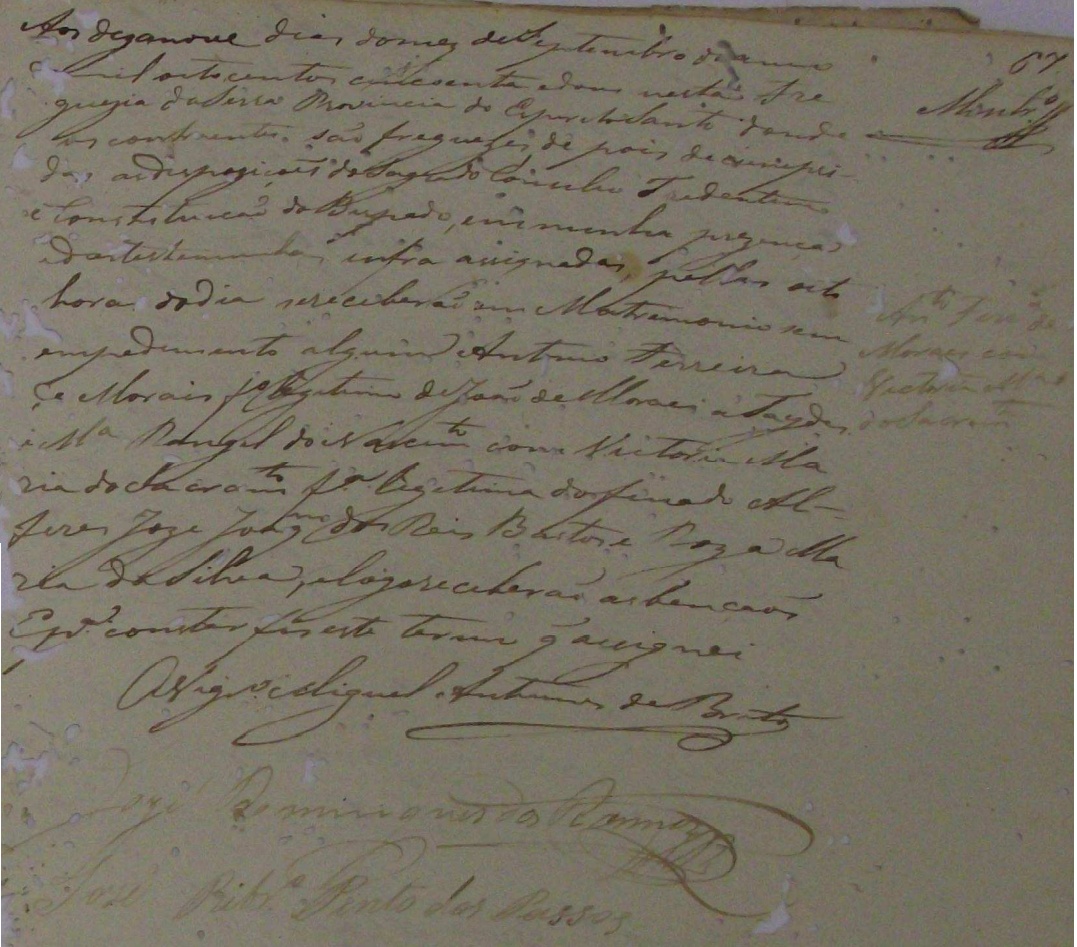 Aos dezanove dias do mez de Septembro do anno
de mil oitocentos e cincoenta e dous nesta Fre
guezia da Serra Provincia do Espirito Santo donde
os contraentes são freguezes de pois de cumpri-
das as dispoziçoẽs do Sagrado Concilio Tredentino
e Constituicaõ do Bispado, em minha prezença
e das testemunhas infra assignadas, pellas oito
horas do dia se receberaõ em Matremonio sem
empedimento algum Antonio Ferreira
de Morais f.º legitimo de Joaõ de Moraes
e M.ª Rangel do Nascim.to com Victoria Ma
ria do Sacram.to f.ª legitima do finado Al-
feres Joze Joaq.m dos Reis Bastos e Roza Ma
ria da Silva, e logo receberaõ as bencaõs
E p.ª constar fis este termo q̃ assignei
O Vigr.º Miguel Antunes de Brito
José Domingues dos Ramos
José Ribr.º Pinto dos Passos
67
Ant.º Ferr.ª de
Moraes com
Victoria M.ª
do Sacram.to